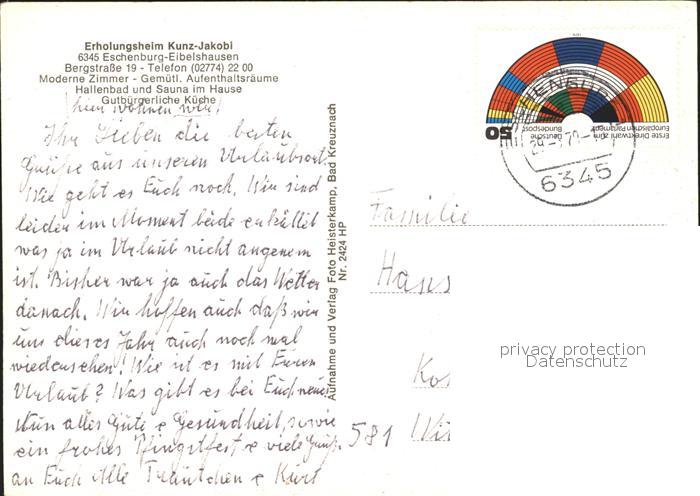 Erholungsheim Kunz-Jakobi
6345 Eschenburg-Eibelshausen
Bergstraße 19 - Telefon (02774) 22 00
Moderne Zimmer - Gemütl. Aufenthaltsräume
Hallenbad und Sauna im Hause
Gutbürgerliche Küche
(hier wohnen wir)
Ihr Lieben die besten
Grüße aus unserem Urlaubsort.
Wie geht es Euch noch. Wir sind
leider im Moment beide erkältet
was ja im Urlaub nicht angenem
ist. Bisher war ja auch das Wetter
danach. Wir hoffen auch daß wir
uns dieses Jahr auch noch mal
wiedersehen! Wie ist es mit Euren
Urlaub? Was gibt es bei Euch neues
Nun alles Gute e Gesundheit, sowie
ein frohes Pfingstfest e viele Grüße
an Euch Alle Träutchen e Kurt
Aufnahme und Verlag Foto Heisterkamp, Bad Kreuznach
Nr. 2424 HP
Erste Direktwahl zum
Europäischen Parlament
Deutsche
Bundespost
50
1979
6345
Familie
Hans
Kos
581 Wi
privacy protection
Datenschutz